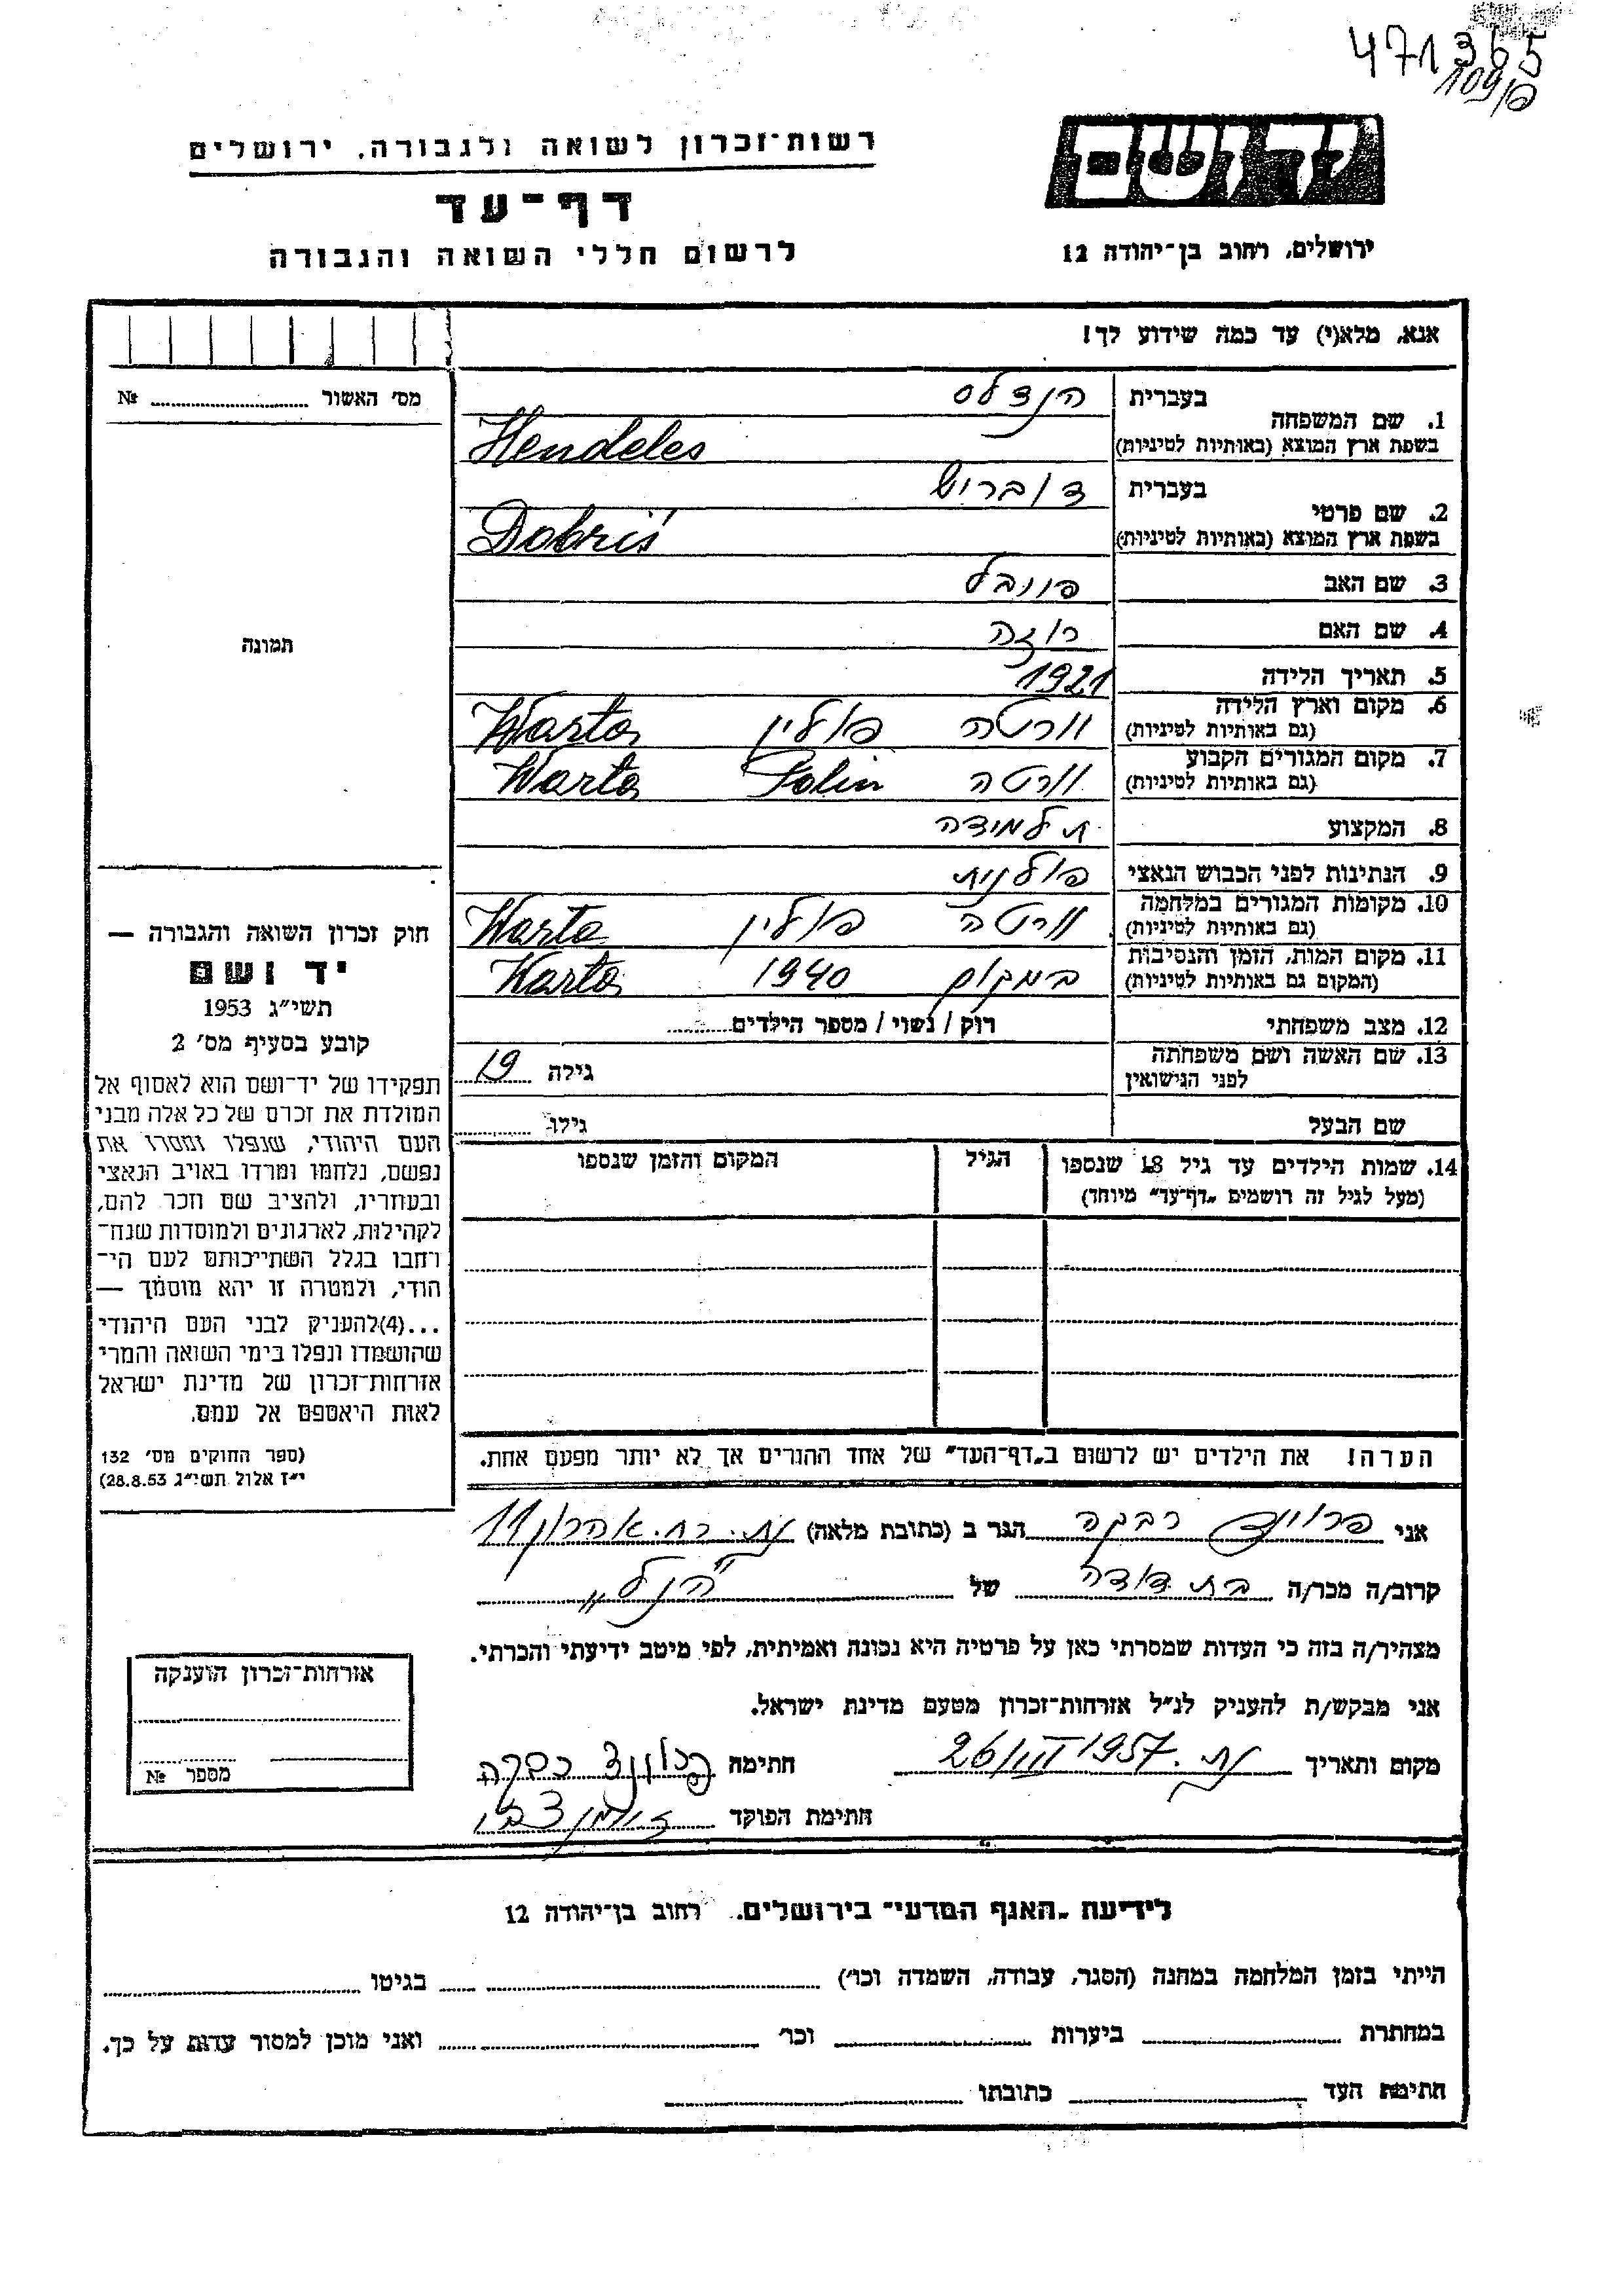 471365
109/פ
יד ושם
רשות-זכרון לשואה ולגבורה, ירושלים
דף-עד
לרשום חללי השואה והגבורה
ירושלים, רחוב בן-יהודה 12
אנא, מלא(י) עד כמה שידוע לך!
מס' האשור № 
1. שם המשפחה
בעברית הנדלס
בשפת ארץ המוצא (באותיות לטיניות) Hendeles
2. שם פרטי
בעברית דובריש
בשפת ארץ המוצא (באותיות לטיניות) Dobriś
3. שם האב פייבל
תמונה
4. שם האם רוזה
5. תאריך הלידה 1921
6. מקום וארץ הלידה ורטה פולין Warta
(גם באותיות לטיניות)
7. מקום המגורים הקבוע ורטה Polin Warta
(גם באותיות לטיניות)
8. המקצוע תלמידה
9. הנתינות לפני הכבוש הנאצי פולנית
10. מקומות המגורים במלחמה ורטה פולין Warta
(גם באותיות לטיניות)
11. מקום המות, הזמן והנסיבות במקום 1940 Warta
(המקום גם באותיות לטיניות)
12. מצב משפחתי רוק / נשוי / מספר הילדים
13. שם האשה ושם משפחתה לפני הנישואין גילה 19
שם הבעל גילו
14. שמות הילדים עד גיל 18 שנספו הגיל המקום והזמן שנספו
(מעל לגיל זה רושמים "דף-עד" מיוחד)
חוק זכרון השואה והגבורה —
יד ושם
תשי"ג 1953
קובע בסעיף מס' 2
תפקידו של יד-ושם הוא לאסוף אל
המולדת את זכרם של כל אלה מבני
העם היהודי, שנפלו ומסרו את
נפשם, נלחמו ומרדו באויב הנאצי
ובעוזריו, ולהציב שם וזכר להם,
לקהילות, לארגונים ולמוסדות שנח-
רבו בגלל השתייכותם לעם הי-
הודי, ולמטרה זו יהא מוסמך —
...(4)להעניק לבני העם היהודי
שהושמדו ונפלו בימי השואה והמרי
אזרחות-זכרון של מדינת ישראל
לאות היאספם אל עמם.
(ספר החוקים מס' 132
י"ז אלול תשי"ג 28.8.53)
הערה! את הילדים יש לרשום ב"דף-העד" של אחד ההורים אך לא יותר מפעם אחת.
אני פרוינד רבקה הגר ב (כתובת מלאה) נת. רח. אהרון 11
קרוב/ה מכר/ה בת דודה של "הנ"ל"
מצהיר/ה בזה כי העדות שמסרתי כאן על פרטיה היא נכונה ואמיתית, לפי מיטב ידיעתי והכרתי.
אני מבקש/ת להעניק לנ"ל אזרחות-זכרון מטעם מדינת ישראל.
מקום ותאריך נת. 26/III 1957 חתימה פרוינד רבקה
חתימת הפוקד
אזרחות-זכרון הוענקה
מספר №
לידיעת "האגף המדעי" בירושלים, רחוב בן-יהודה 12
הייתי בזמן המלחמה במחנה (הסגר, עבודה, השמדה וכו') בגיטו
במחתרת ביערות וכו' ואני מוכן למסור עדות על כך.
חתימת העד כתובתו